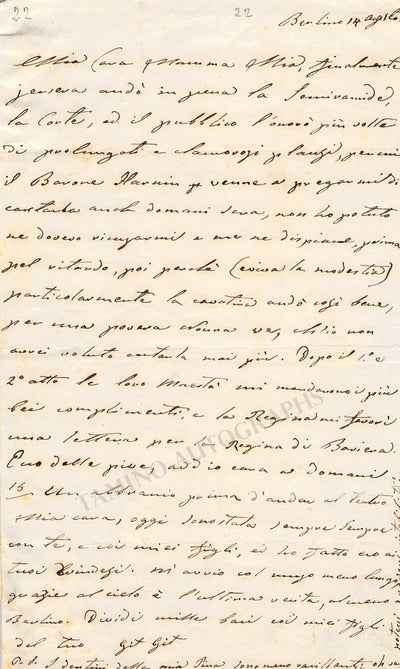 22 22
Berlino 14 agosto
Mia Cara Mamma Mia, finalmente
jersera andò in scena la Semiramide,
la Corte, ed il pubblico l'onorò più volte
di prolungati e clamorosi plausi, per cui
il Barone venne a pregarmi di
cantarla anch domani sera, non ho potuto
ne dovevo ricusarmi e me ne dispiace, prima
pel ritardo, poi perchè (eviva la modestia)
particolarmente la cavatina andò così bene,
per una povera nonna ch'io non
avrei voluto cantarla mai più. Dopo il 1.º e
2º atto le loro Maestà mi mandavono i più
bei complimenti, e la Regina mi favorì
una lettera per la Regina di Baviera.
addio cara a domani
15. Un abbraccio prima d'andar al teatro
Mia cara, oggi sono stata sempre sempre
con te, e coi miei figli, ed ho fatto
tuoi brindisi. Mi avvio col muso meno lungo,
grazie al cielo è l'ultima recita, almeno a
Berlino. Dividi mille baci coi miei figli.
del tuo git Git
P.S. I dentini della mia Pina sono meno vacillanti;
TAMINO AUTOGRAPHS